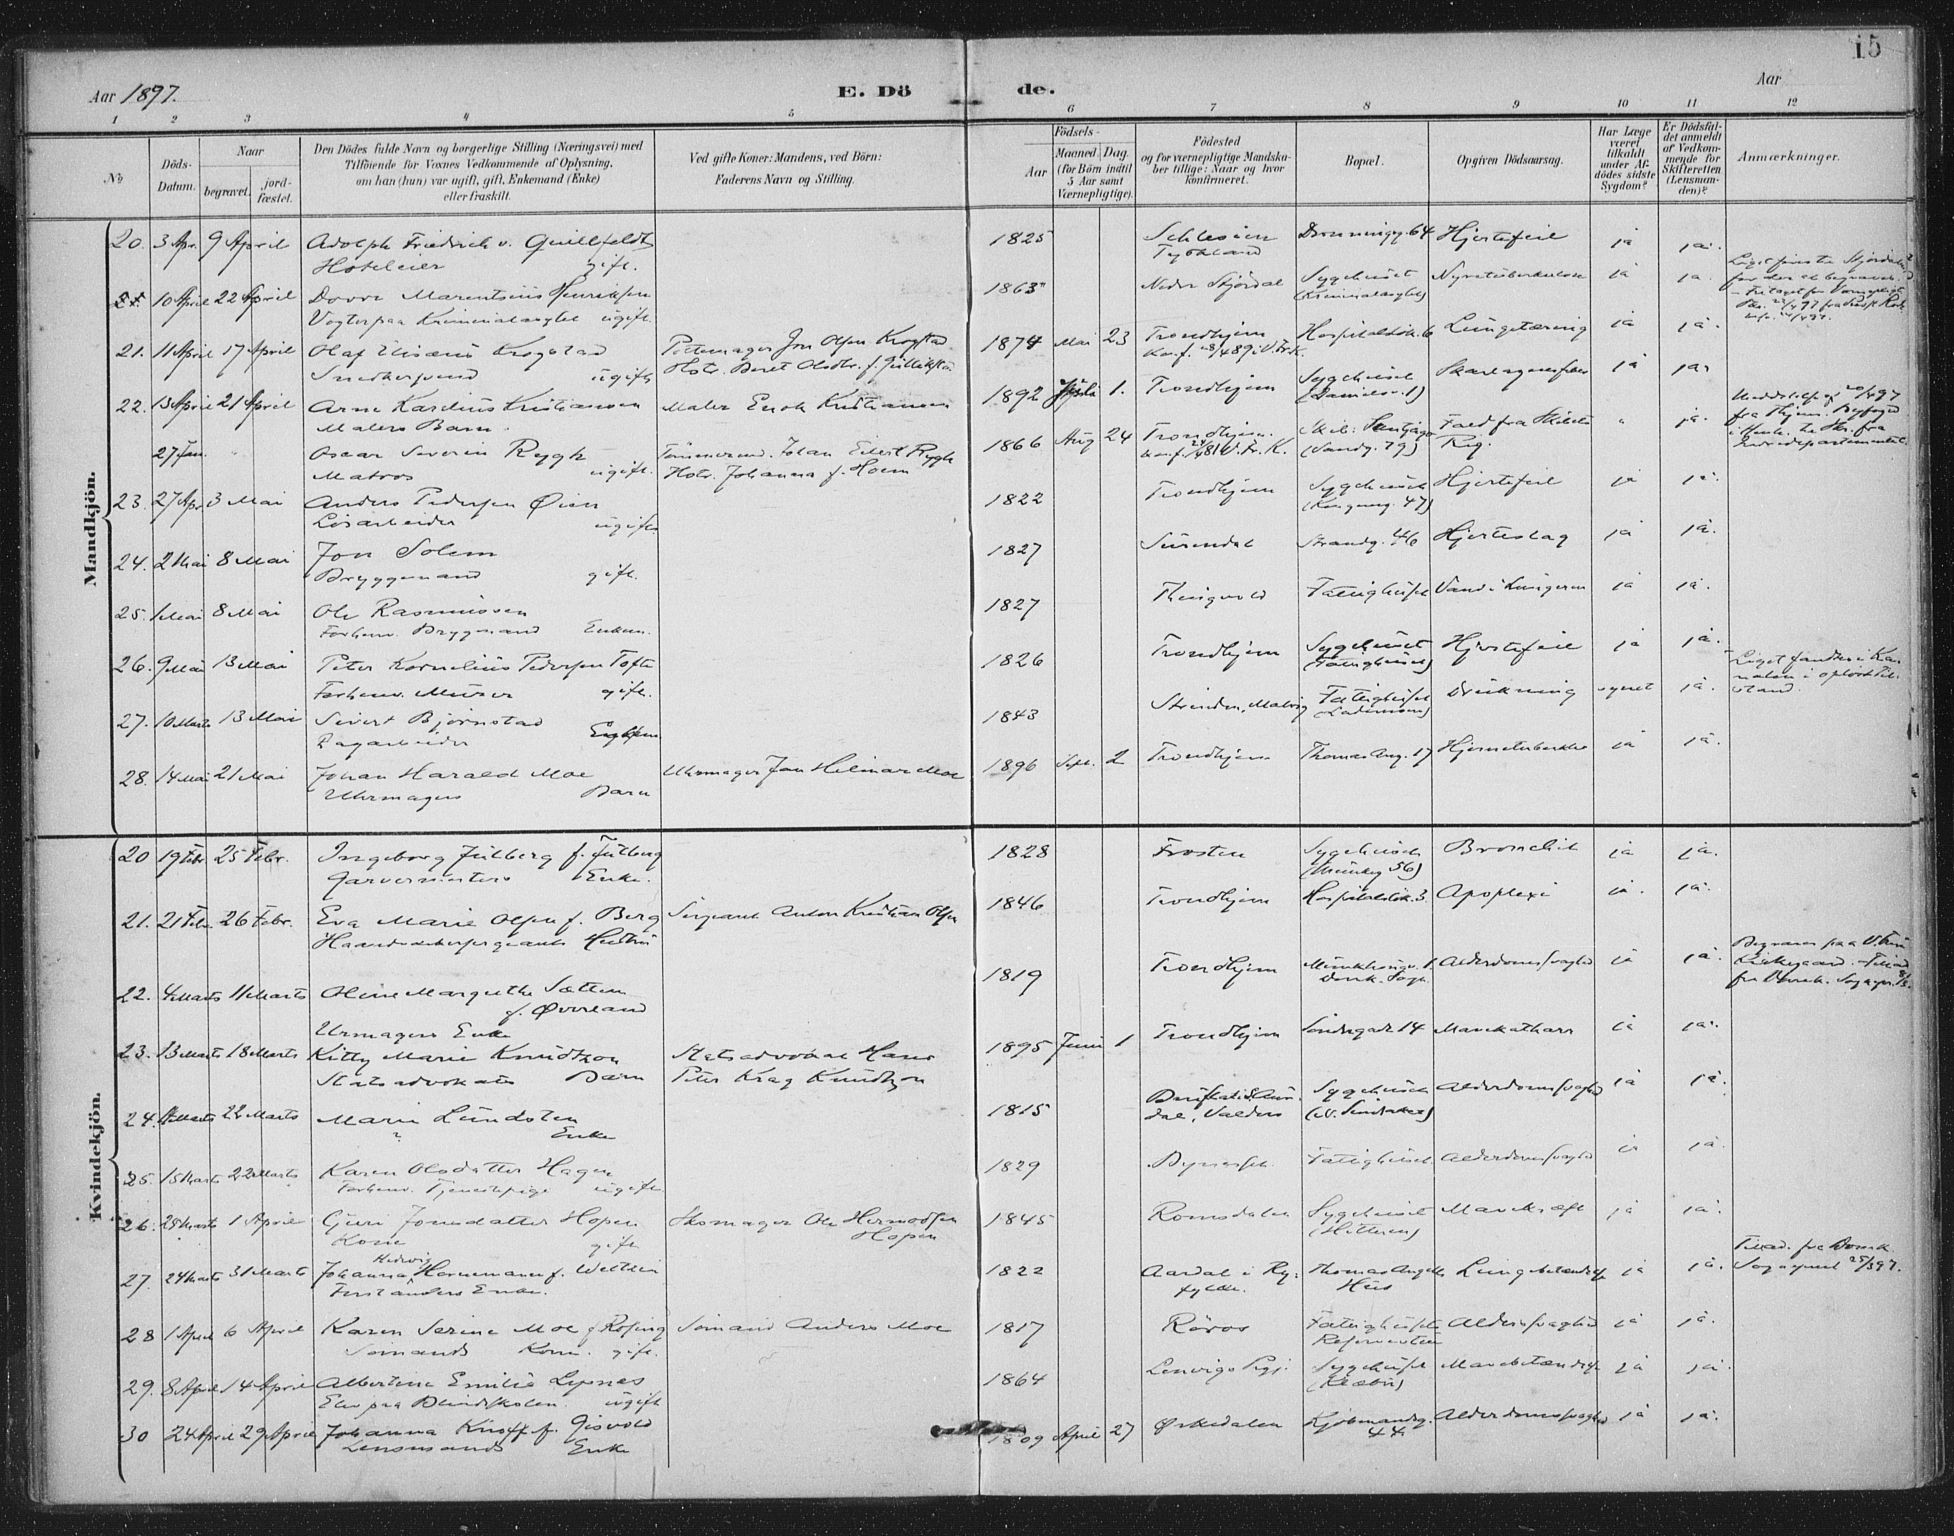 15
Aar 1897. E. Dö de. Aar
1 2 3 4 5 6 7 8 9 10 11 12
No
Döds-Datum.
Naar
begravet.
jord-fæstet.
Den Dödes fulde Navn og borgerlige Stilling (Næringsvei) med
Tilföiende for Voxnes Vedkommende af Oplysning,
om han (hun) var ugift, gift, Enkemand (Enke)
eller fraskilt.
Ved gifte Koner: Mandens, ved Börn:
Faderens Navn og Stilling.
Födsels-
Aar
Maaned Dag.
(for Börn indtil
5 Aar samt
Værnepligtige).
Födested
og for værnepligtige Mandska-
ber tillige: Naar og hvor
konfirmeret.
Bopæl.
Opgiven Dödsaarsag.
Har Læge
været
tilkaldt
under Af-
dödes sidste
Sygdom?
Er Dödsfal-
det anmeldt
af Vedkom-
mende for
Skifteretten
(Lensman-
den)?
Anmærkninger.
Mandkjön.
20. 3 Apr. 9 April Adolph Friedrich v. Quillfeldt 1825 Schlesien Dronningg. 64 Hjertefeil ja ja.
Hoteleier gift. Tyskland
10 April 22 April Dovre Marentsius Henriksen 1863 Nedre Stjördal Sygehuset Nyretuberkulose ja ja
Vogter paa Kriminalasylet ugift. (Kriminalasylet)
21. 11 April 17 April Olaf Elisæus Krogstad Pottemager Jon Olsen Krogstad 1874 Mai 23 Trondhjem Hospitalslök. 6 Lungetæring ja ja.
Snedkersvend ugift Hstr. Beret Olsdtr. f.
22. 13 April 21 April Arne Kardius Kristiansen Maler Enok Kristiansen 1892 1. Trondhjem Sygehuset Skarlagensfeber ja ja
Malers Barn. (Danielsv. 1)
27 Jan. " Oscar Severin Rygh Tömmermand. Johan Eilert Rygh 1866 Aug 24 Trondhjem. Fald fra Skibets " ja.
Matros ugift. Hstr. Johanna f. Hoem (Sandg. 79) Rig.
23. 27 Apr 3 Mai Anders Pedersen Öien 1822 Trondhjem Sygehuset Hjertefeil ja ja.
Lösarbeider ugift (Kongensg. 47)
24. 2 Mai 8 Mai Jon Solem 1827 Surendal Strandg. 46 Hjerteslag ja ja.
Bryggemand gift.
25. 1 Mai 8 Mai Ole Rasmussen 1827 Thingvold Fattighuset Vand i Lungerne ja ja.
Forhenv. Bryggemand Enkem.
26. 9 Mai 13 Mai Peter Kornelius Pedersen Tofte 1826 Trondhjem Sygehuset Hjertefeil ja ja.
Forhenv. Murer gift. (Fattighuset)
27. 10 Marts 13 Mai Sivert Björnstad 1843 Strinden, Malvig Fattighuset Drukning synet ja.
Dagarbeider Enkem (Lademoen)
Liget fandtes i Ka-
nalen i oplöst Til-
stand.
28. 14 Mai 21 Mai Johan Harald Moe Uhrmager Jon Hilmar Moe 1896 Sept. 2 Trondhjem Thomas Ang. 17 Hjernetuberkler ja ja.
Uhrmagers Barn
Kvindekjön.
20 19 Febr. 25 Febr. Ingeborg Julberg f. Julberg 1828 Frosten Sygehuset Bronchit ja ja.
Garvermesters Enke. (Munkeg 56)
21. 21 Febr 26 Febr. Eva Marie Olsen f. Berg Sergeant Anton Kristian Olsen 1846 Trondhjem Hospitalslök. 3. Apoplexi ja. ja.
Haandværkersergeants Hustru
22. 4 Marts 11 Marts Oline Margrethe Sætten 1819 Trondhjem Alderdomssvaghed ja ja.
f. Överland Domk. Sogn
Urmagers Enke
23. 13 Marts 18 Marts Kitty Marie Knudtzon Statsadvokat Hans 1895 Juni 1 Trondhjem Söndregade 14 Mavekatharr ja ja.
Statsadvokats Barn Peter Krag Knudtzon
24. Marts 22 Marts Marie Lundsten 1815 Sygehuset Alderdomssvaghed ja ja.
? Enke dal, Valders
25. 15 Marts 22 Marts Karen Olsdatter Hagen 1829 Bynesset. Fattighuset. Alderdomssvaghed ja ja.
Forhenv. Tjenestepige ugift
26. 25 Marts 1 April Guri Jonsdatter Hopen Skomager Ole Hermodsen 1845 Romsdalen Sygehuset Mavekræft ja ja.
Kone gift Hopen (Hitteren)
27. 24 Marts 31 Marts Johanna Hedvig Hornemann f. Welthin 1822 Aardal i Ry- Thomas Angells Lungebetændelse ja ja.
Forstanders Enke. fylke. Hus
Tillad. fra Domk.
Sogneprest 25/3 97.
28 1 April 6 April Karen Serine Moe f. Rosing Sömand Anders Moe 1817 Röros Fattighusets Alderssvaghed ja ja.
Sömands Kone. gift.
29. 8 April 14 April Albertine Emilie Lysnes 1864 Lenvigs Pgj. Sygehuset Mavebetændelse ja ja.
Elev paa Blindskolen. ugift (Klæbu)
30 24 April 29 April Johanna Knoff f. Gisvold 1809 April 27 Örkedalen Kjöbmandsg. Alderdomssvaghed ja ja.
Lensmands Enke 44